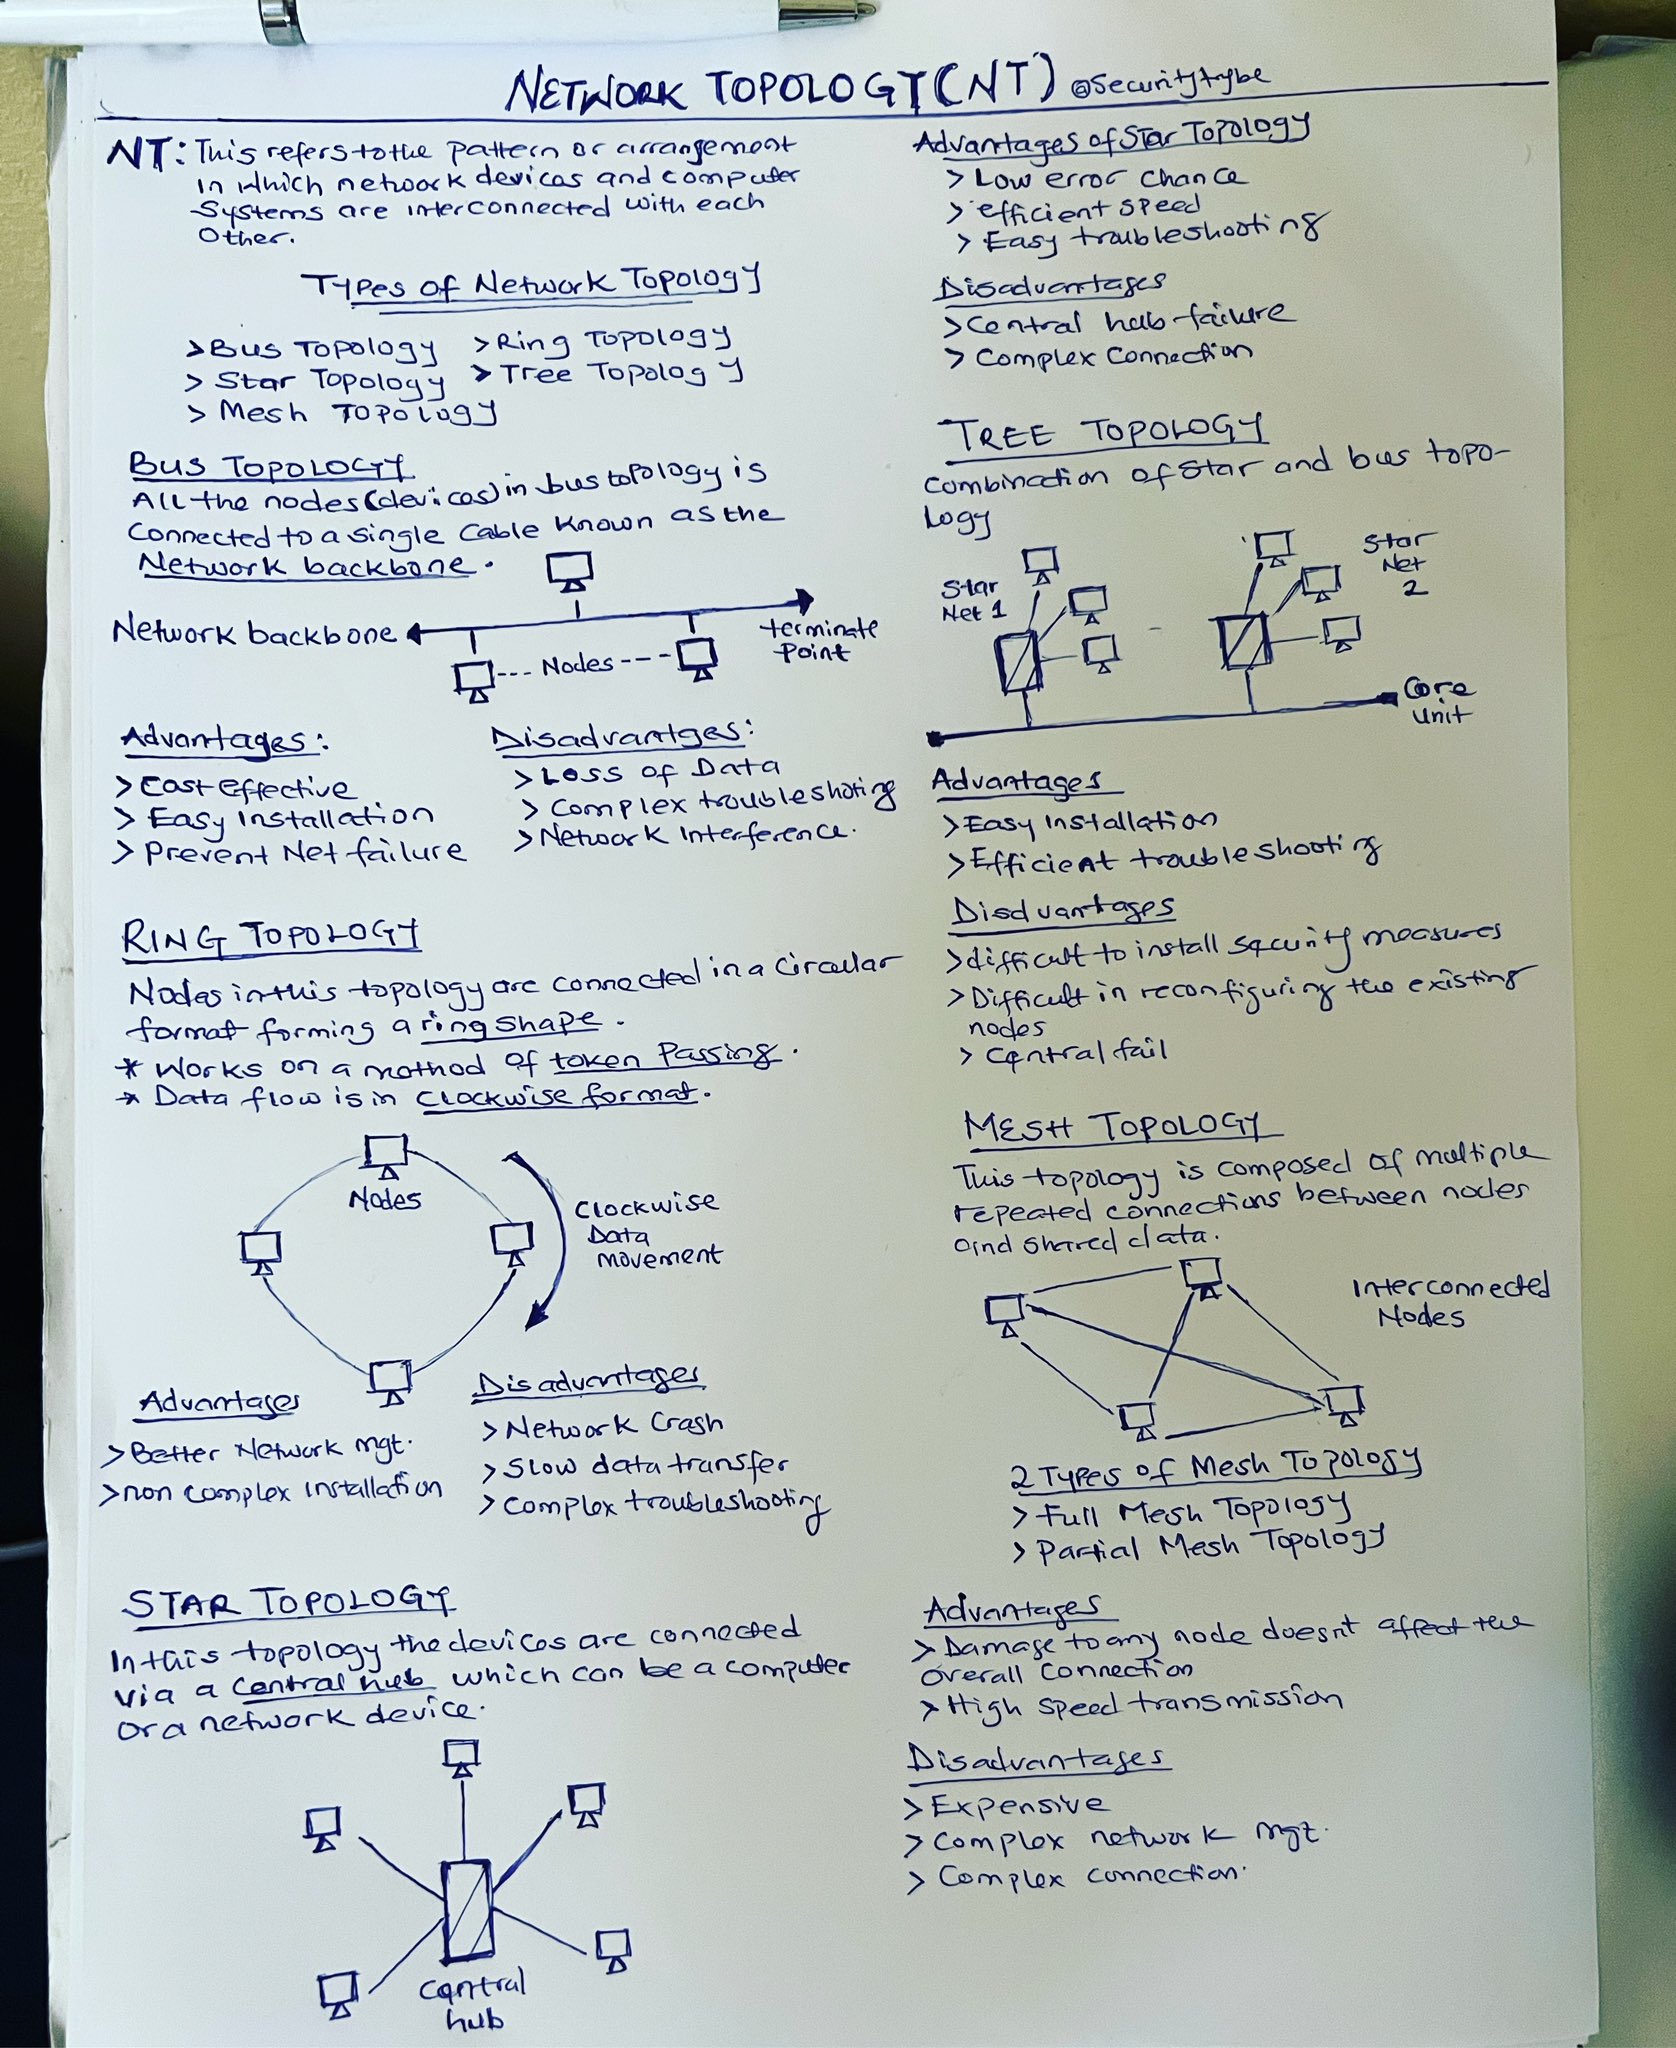 NETWORK TOPOLOGY (NT) @Securitytribe
NT: This refers to the pattern or arrangement
in which network devices and computer
Systems are interconnected with each
Other.
Types of Network Topology
> Bus Topology > Ring Topology
> Star Topology > Tree Topology
> Mesh Topology
BUS TOPOLOGY
All the nodes (devices) in bus topology is
Connected to a single Cable known as the
Network backbone.
Network backbone
terminate
Point
--- Nodes ---
Advantages:
> Cost effective
> Easy installation
> Prevent Net failure
Disadvantges:
> Loss of Data
> Complex troubleshoting
> Network Interference.
RING TOPOLOGY
Nodes in this topology are connected in a Circular
format forming a ring shape.
* Works on a method of token Passing.
* Data flow is in Clockwise format.
Nodes
Clockwise
Data
movement
Advantages
> Better Network mgt.
> non complex installation
Disadvantages
> Network Crash
> Slow data transfer
> Complex troubleshooting
STAR TOPOLOGY
In this topology the devices are connected
via a Central hub which can be a computer
Or a network device.
Central
hub
Advantages of Star Topology
> Low error chance
> efficient speed
> Easy troubleshooting
Disadvantages
> Central hub failure
> Complex Connection
TREE TOPOLOGY
Combination of Star and bus topo-
logy
Star
Net 1
Star
Net
2
Core
unit
Advantages
> Easy installation
> Efficient troubleshooting
Disdvantages
> difficult to install security measures
> Difficult in reconfiguring the existing
nodes
> Central fail
MESH TOPOLOGY
This topology is composed of multiple
repeated connections between nodes
and shared data.
Interconnected
Nodes
2 Types of Mesh Topology
> Full Mesh Topology
> Partial Mesh Topology
Advantages
> Damage to any node doesn't affect the
Overall Connection
> High speed transmission
Disadvantages
> Expensive
> Complex network mgt.
> Complex connection.